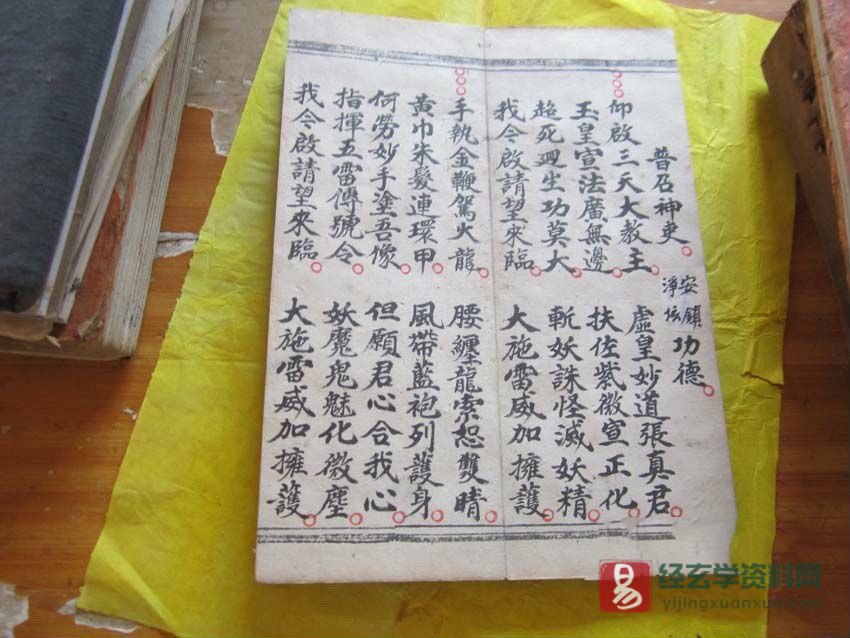 普召神吏 安鎮 淨坛 功德
仰啟三天大教主 虛皇妙道張真君
玉皇宣法廣無邊 扶佐紫微宣正化
超死迴生功莫大 斬妖誅怪滅妖精
我今啟請望來臨 大施雷威加擁護
手執金鞭駕火龍 腰纏龍索恕雙睛
黃巾朱髮連環甲 風帶藍袍列護身
何勞妙手塗吾像 但願君心合我心
指揮五雷傳號令 妖魔鬼魅化微塵
我今啟請望來臨 大施雷威加擁護
易 经玄学资料网
yijingxuanxue.com